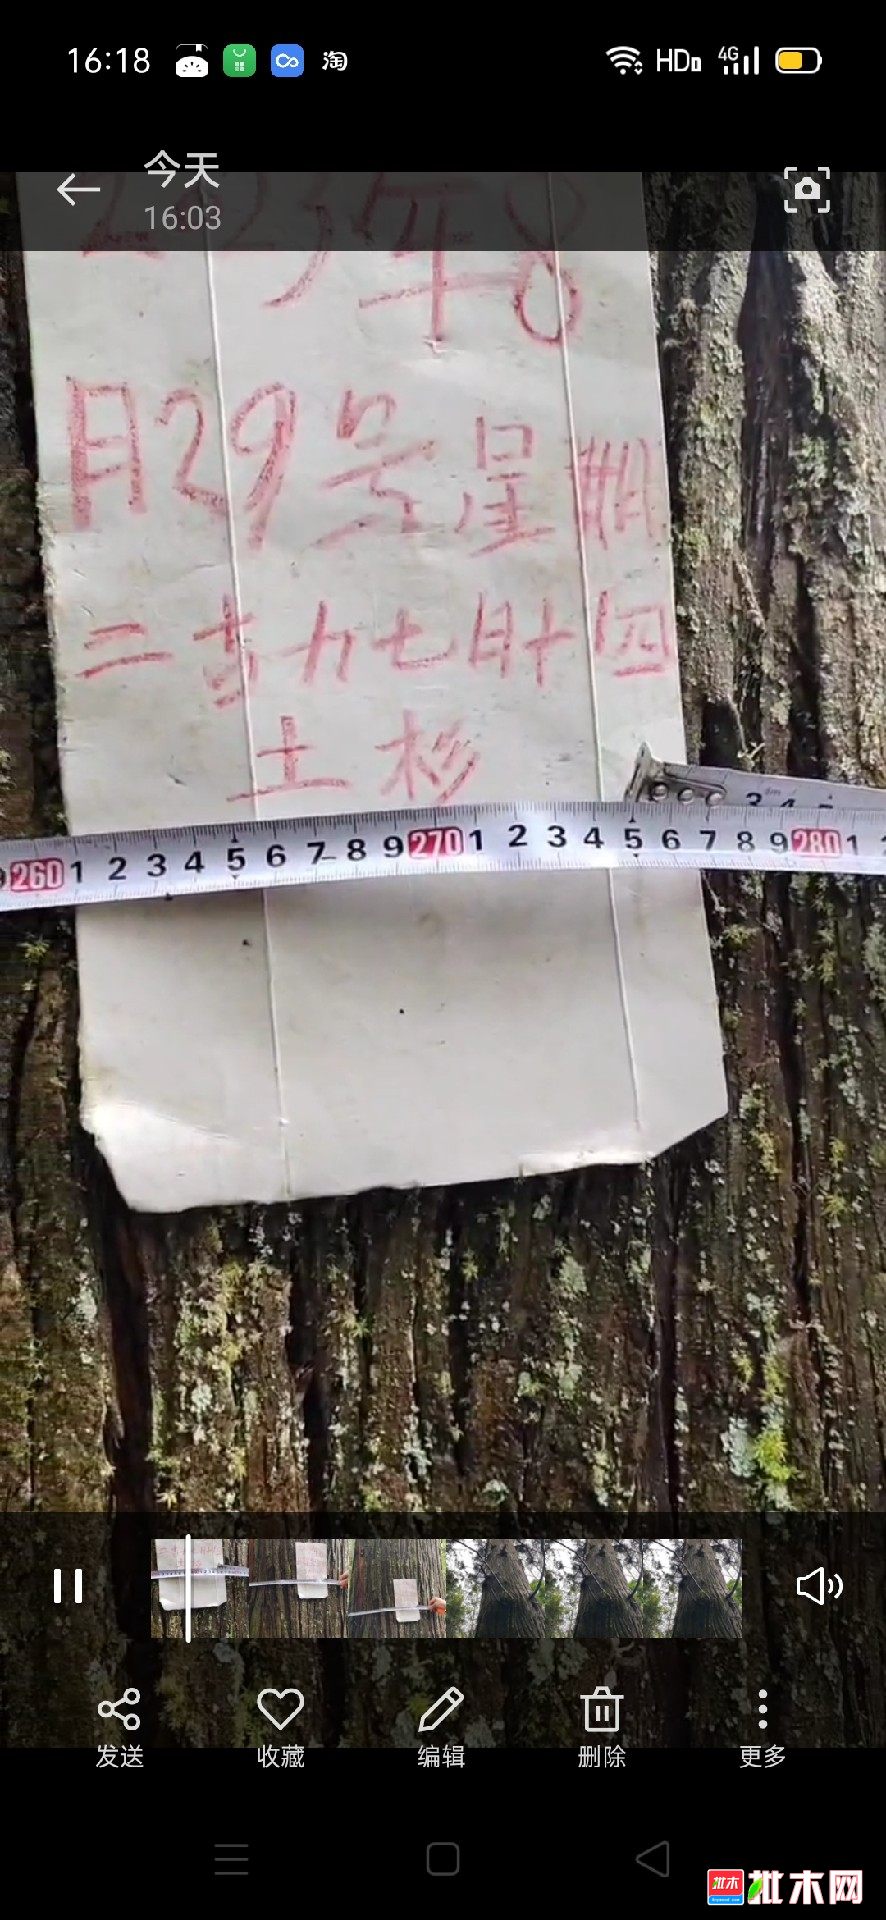 16:18 淘 HD 4G
今天
16:03
23年8
月29号星期
二农历七月十四
土杉
3 4 5
9 260 1 2 3 4 5 6 7 8 9 270 1 2 3 4 5 6 7 8 9 280 1
发送 收藏 编辑 删除 更多
批木 批木网